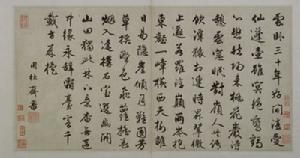 雲臥三十年好閒復愛
仙蓬壺雖冥絕鸞鶴
心悠然歸來桃花巖得
憩雲窗眠對嶺人共語
飲潭猿相連時昇翠微
上邈若羅浮巔兩岑抱
東壑一嶂橫西天樹雜
日易隱崖傾月難圓芳
草換野色飛蘿搖春
煙入遠構石室選幽開
山田獨此林下意杳無區
中緣永辭霜臺客千
載方來旋